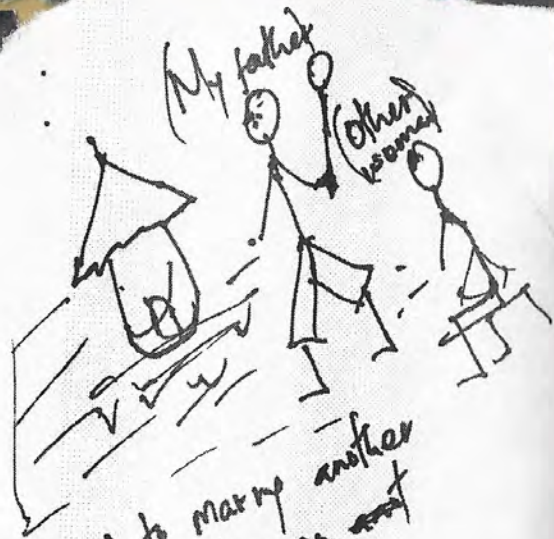 (My father
(other)
woman
to marry another